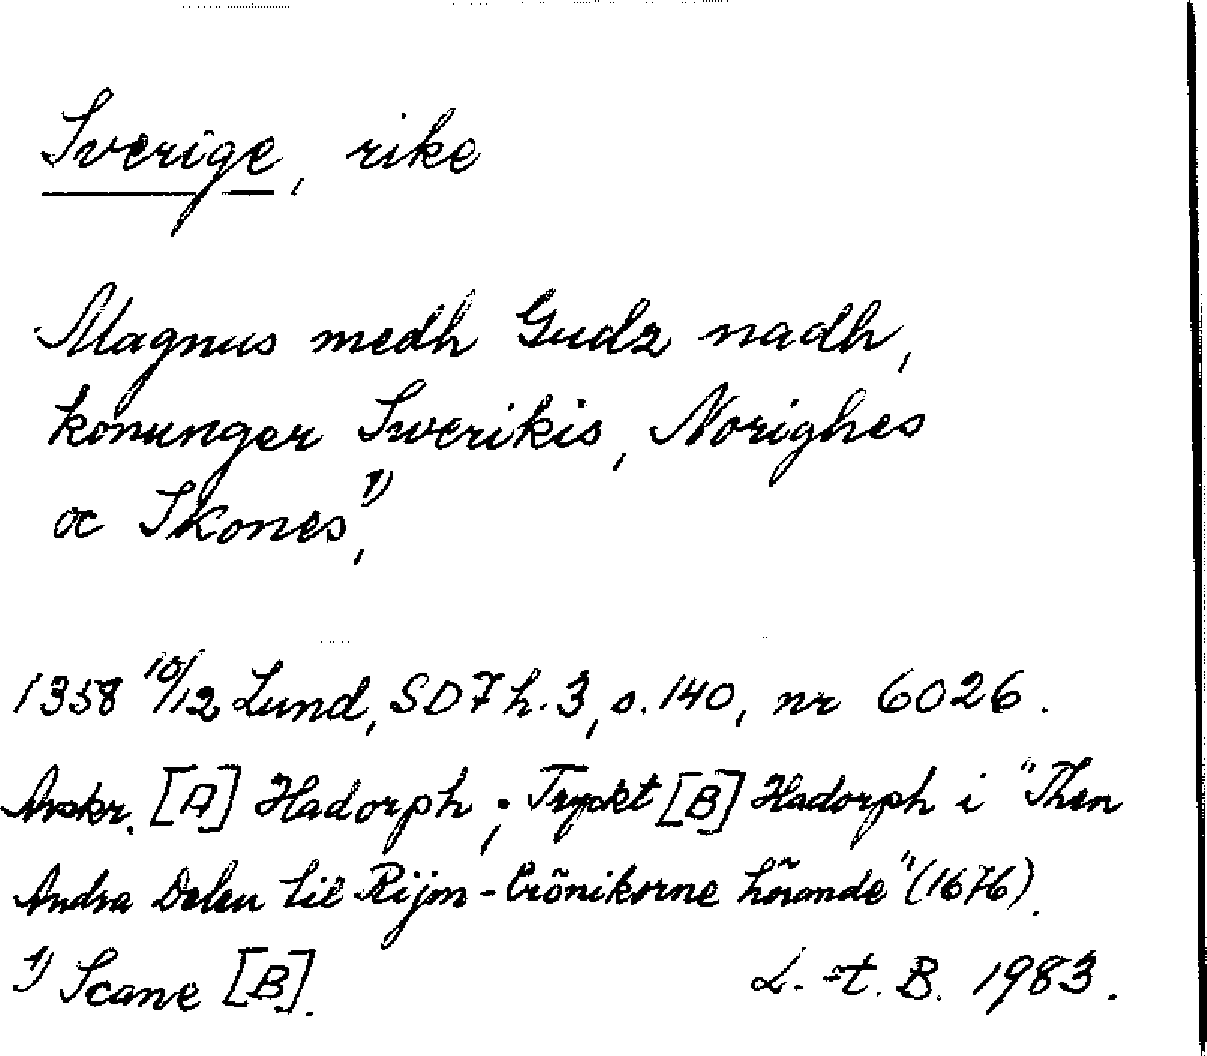 Sverige, rike
Magnus medh Gudz nadh,
konunger Swerikis, Norighes
oc Skones,¹⁾
1358 10/12 Lund, SD 7 h. 3, s. 140, nr 6026.
Avskr. [A] Hadorph; Tryckt [B] Hadorph i "Then
Andra Delen til Rijm-Crönikorne hörande" (1676).
¹⁾ Scane [B].
L.-t. B. 1983.